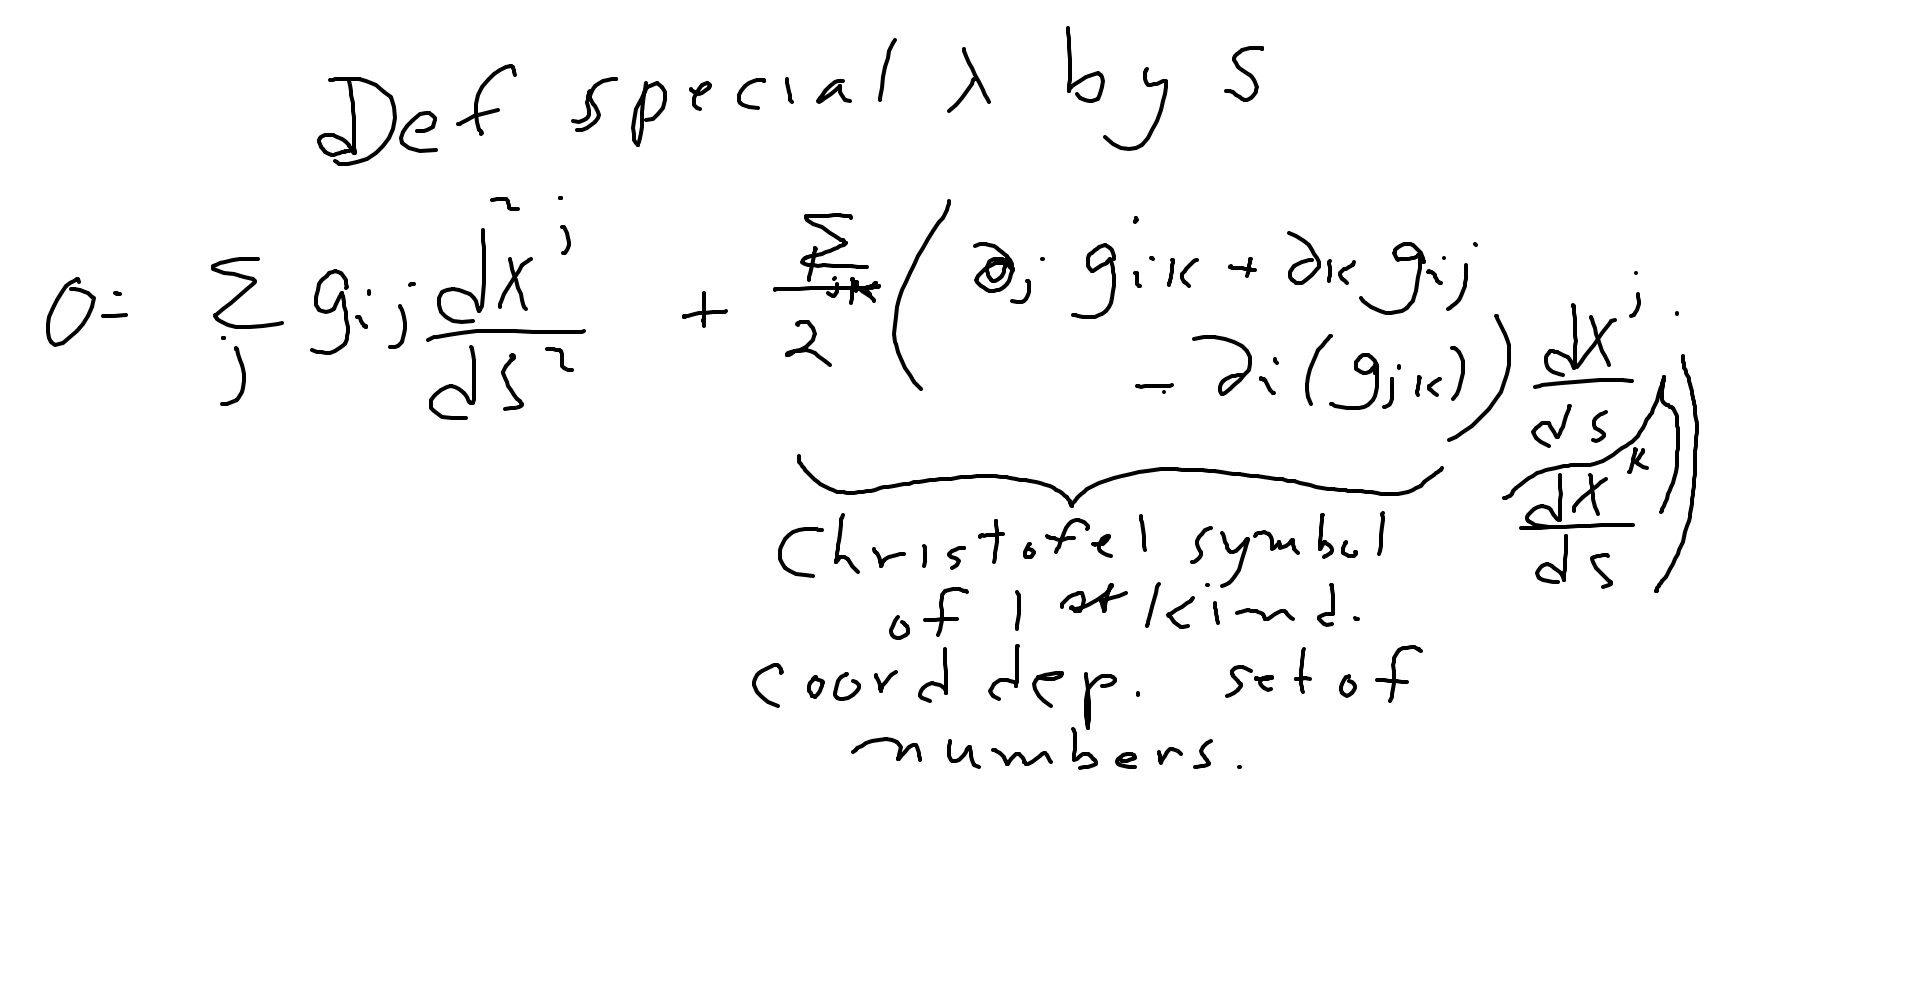 Def special λ by s
0 = Σ_j g_ij d²x^j/ds² + Σ_jk/2 ( ∂_j g_ik + ∂_k g_ij
− ∂_i (g_jk) ) dx^j/ds
dx^k/ds )
Christofel symbol
of 1st kind.
coord dep. set of
numbers.